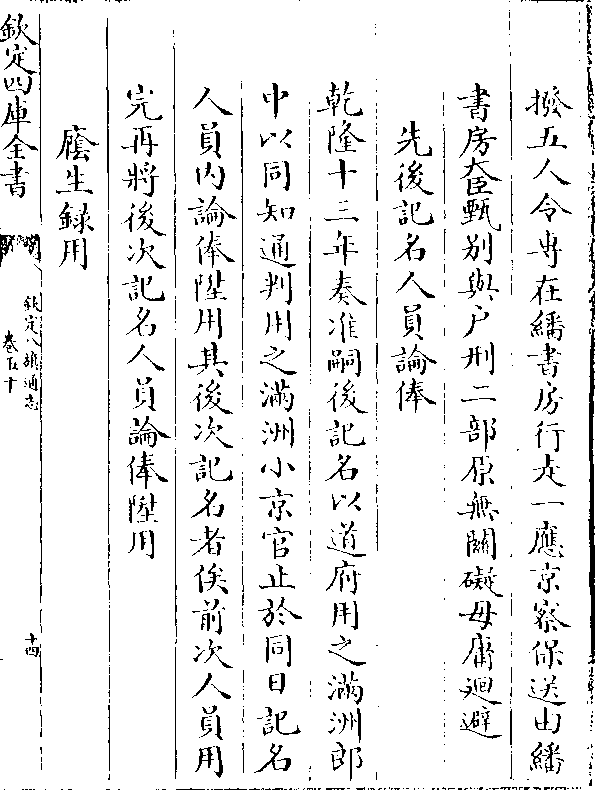 撥五人令專在繙書房行走一應京察保送由繙
書房大臣甄别與户刑二部原無關礙毋庸迴避
先後記名人員論俸
乾隆十三年奏准嗣後記名以道府用之滿洲郎
中以同知通判用之滿洲小京官止於同日記名
人員内論俸陞用其後次記名者俟前次人員用
完再將後次記名人員論俸陞用
廕生録用
欽定四庫全書
欽定八旗通志
卷五十
十四